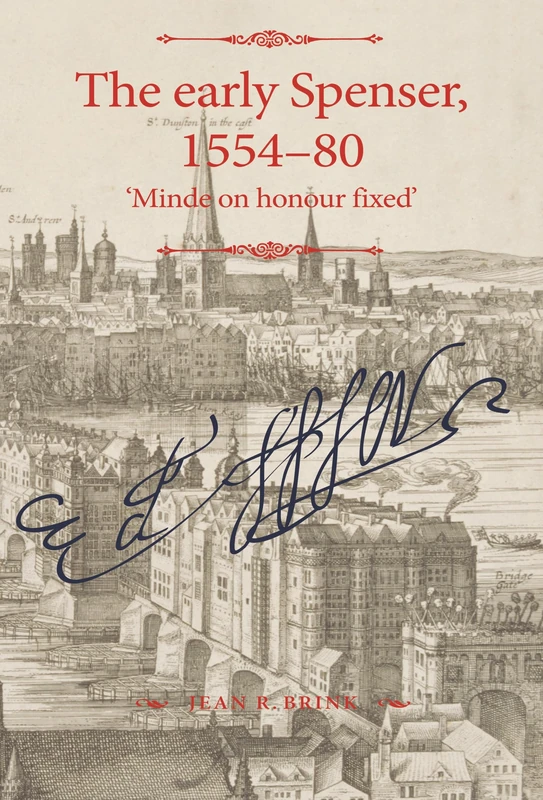 The early Spenser,
St. Dunston in the east
1554–80
‘Minde on honour fixed’
St Andrew
JEAN R. BRINK
Bridge